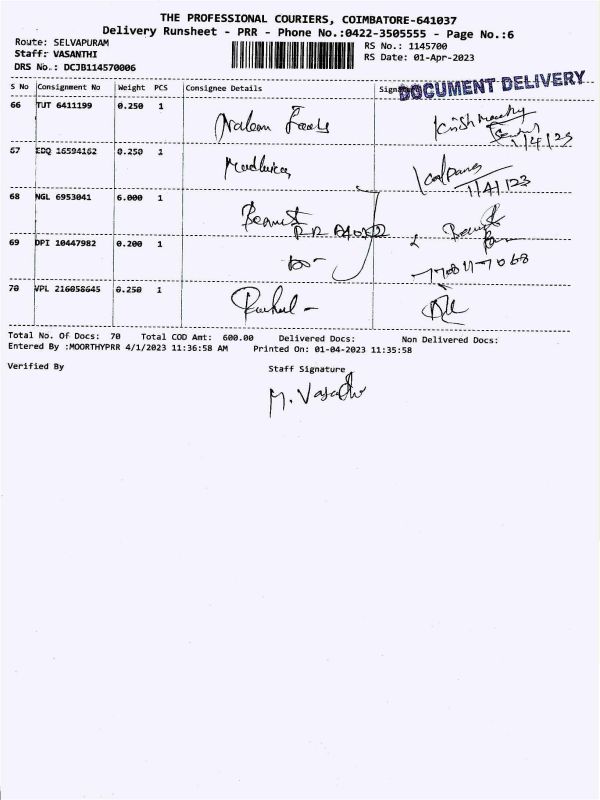 THE PROFESSIONAL COURIERS, COIMBATORE-641037
Delivery Runsheet - PRR - Phone No.:0422-3505555 - Page No.:6
Route: SELVAPURAM
RS No.: 1145700
Staff: VASANTHI
RS Date: 01-Apr-2023
DRS No.: DCJB114570006
DOCUMENT DELIVERY
S No Consignment No Weight PCS Consignee Details
66 TUT 6411199 0.250 1
67 EDQ 16594162 0.250 1 Madhukar Kalpana
1/4/23
68 NGL 6953041 6.000 1
69 DPI 10447982 0.200 1
70 VPL 216058645 0.250 1 Rahul -
Total No. Of Docs: 70 Total COD Amt: 600.00 Delivered Docs: Non Delivered Docs:
Entered By :MOORTHYPRR 4/1/2023 11:36:58 AM Printed On: 01-04-2023 11:35:58
Verified By Staff Signature